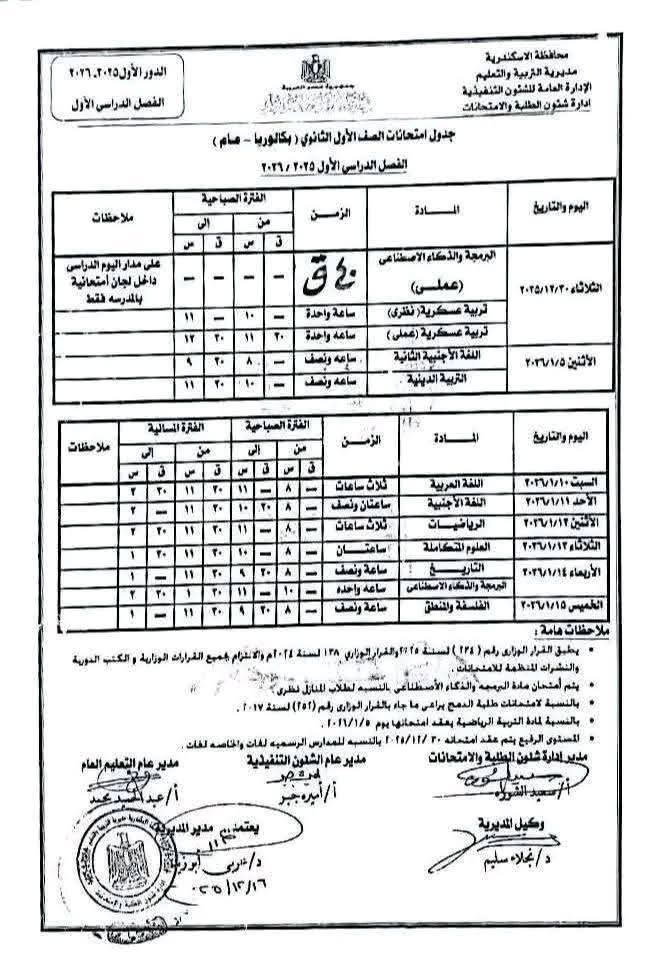 محافظة الاسكندرية
مديرية التربية والتعليم
الإدارة العامة للشئون التنفيذية
إدارة شئون الطلبة والامتحانات
جمهورية مصر العربية
الدور الأول ٢٠٢٥ـ٢٠٢٦
الفصل الدراسي الأول
جدول امتحانات الصف الأول الثانوي ( بكالوريا - عام )
الفصل الدراسي الأول ٢٠٢٥ / ٢٠٢٦
اليوم والتاريخ المــادة الزمــن الفترة الصباحية ملاحظات
من إلى
ق س ق س
الثلاثاء ٢٠٢٥/١٢/٣٠ البرمجة والذكاء الاصطناعى (عملــى) ٤٠ ق — — — — على مدار اليوم الدراسى داخل لجان أمتحانية بالمدرسه فقط
تربية عسكرية (نظرى) ساعة واحدة — ١٠ — ١١
تربية عسكرية (عملى) ساعة واحدة ٣٠ ١١ ٣٠ ١٢
الأثنين ٢٠٢٦/١/٥ اللغة الأجنبية الثانية ساعه ونصف — ٨ ٣٠ ٩
التربية الدينية ساعه ونصف — ١٠ ٣٠ ١١
اليوم والتاريخ المــادة الزمــن الفترة الصباحية الفترة المسائية ملاحظات
من إلى من إلى
ق س ق س ق س ق س
السبت ٢٠٢٦/١/١٠ اللغة العربية ثلاث ساعات — ٨ — ١١ ٣٠ ١١ ٣٠ ٢
الأحد ٢٠٢٦/١/١١ اللغة الأجنبية ساعتان ونصف — ٨ ٣٠ ١٠ ٣٠ ١١ — ٢
الأثنين ٢٠٢٦/١/١٢ الرياضيــات ثلاث ساعات — ٨ — ١١ ٣٠ ١١ ٣٠ ٢
الثلاثاء ٢٠٢٦/١/١٣ العلوم المتكاملة ساعتــان — ٨ — ١٠ ٣٠ ١١ ٣٠ ١
الأربعاء ٢٠٢٦/١/١٤ التاريــخ ساعة ونصف — ٨ ٣٠ ٩ ٣٠ ١١ — ١
البرمجة والذكاء الاصطناعى ساعه واحده — ١٠ — ١١ ٣٠ ١ ٣٠ ٢
الخميس ٢٠٢٦/١/١٥ الفلسفة والمنطق ساعة ونصف — ٨ ٣٠ ٩ ٣٠ ١١ — ١
ملاحظات هامة :
• يطبق القرار الوزارى رقم ( ٢٣٤ ) لسنة ٢٠٢٥ والقرار الوزاري ١٣٨ لسنة ٢٠٢٤م والالتزام بجميع القرارات الوزارية و الكتب الدورية
والنشرات المنظمة للامتحانات .
• يتم أمتحان مادة البرمجه والذكاء الأصطناعى بالنسبه لطلاب المنازل نظرى .
• بالنسبة لامتحانات طلبة الدمج يراعى ما جاء بالقرار الوزارى رقم (٢٥٢) لسنة ٢٠١٧ .
• بالنسبة لمادة التربية الرياضية يعقد امتحانها يوم ٢٠٢٦/١/٥ .
• المستوى الرفيع يتم عقد امتحانه ٣٠ /٢٠٢٥/١٢ بالنسبه للمدارس الرسميه لغات والخاصه لغات .
مدير إدارة شئون الطلبة والامتحانات
مدير عام الشئون التنفيذية
أ/ أميره جبر
مدير عام التعليم العام
وكيل المديرية
د/ نجلاء سليم
يعتمد مدير المديرية
٢٠٢٥/١٢/١٦